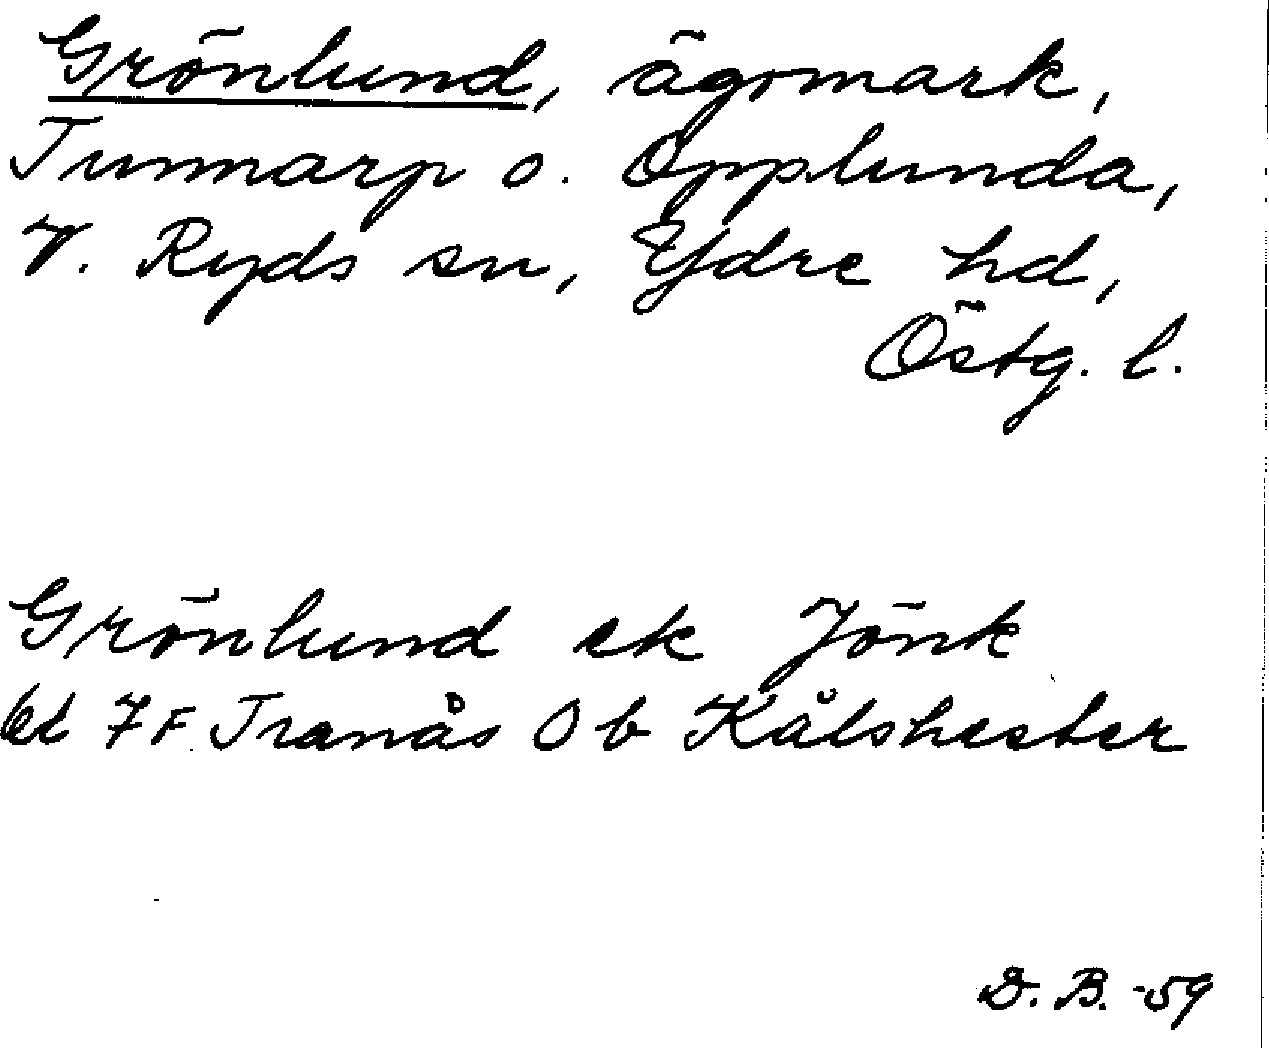 Grönlund, ägomark,
Tunnarp o. Opplunda,
V. Ryds sn, Ydre hd,
Östg. l.
Grönlund ek Jönk
bl 7F Tranås Ob Kålshester
D. B. -59